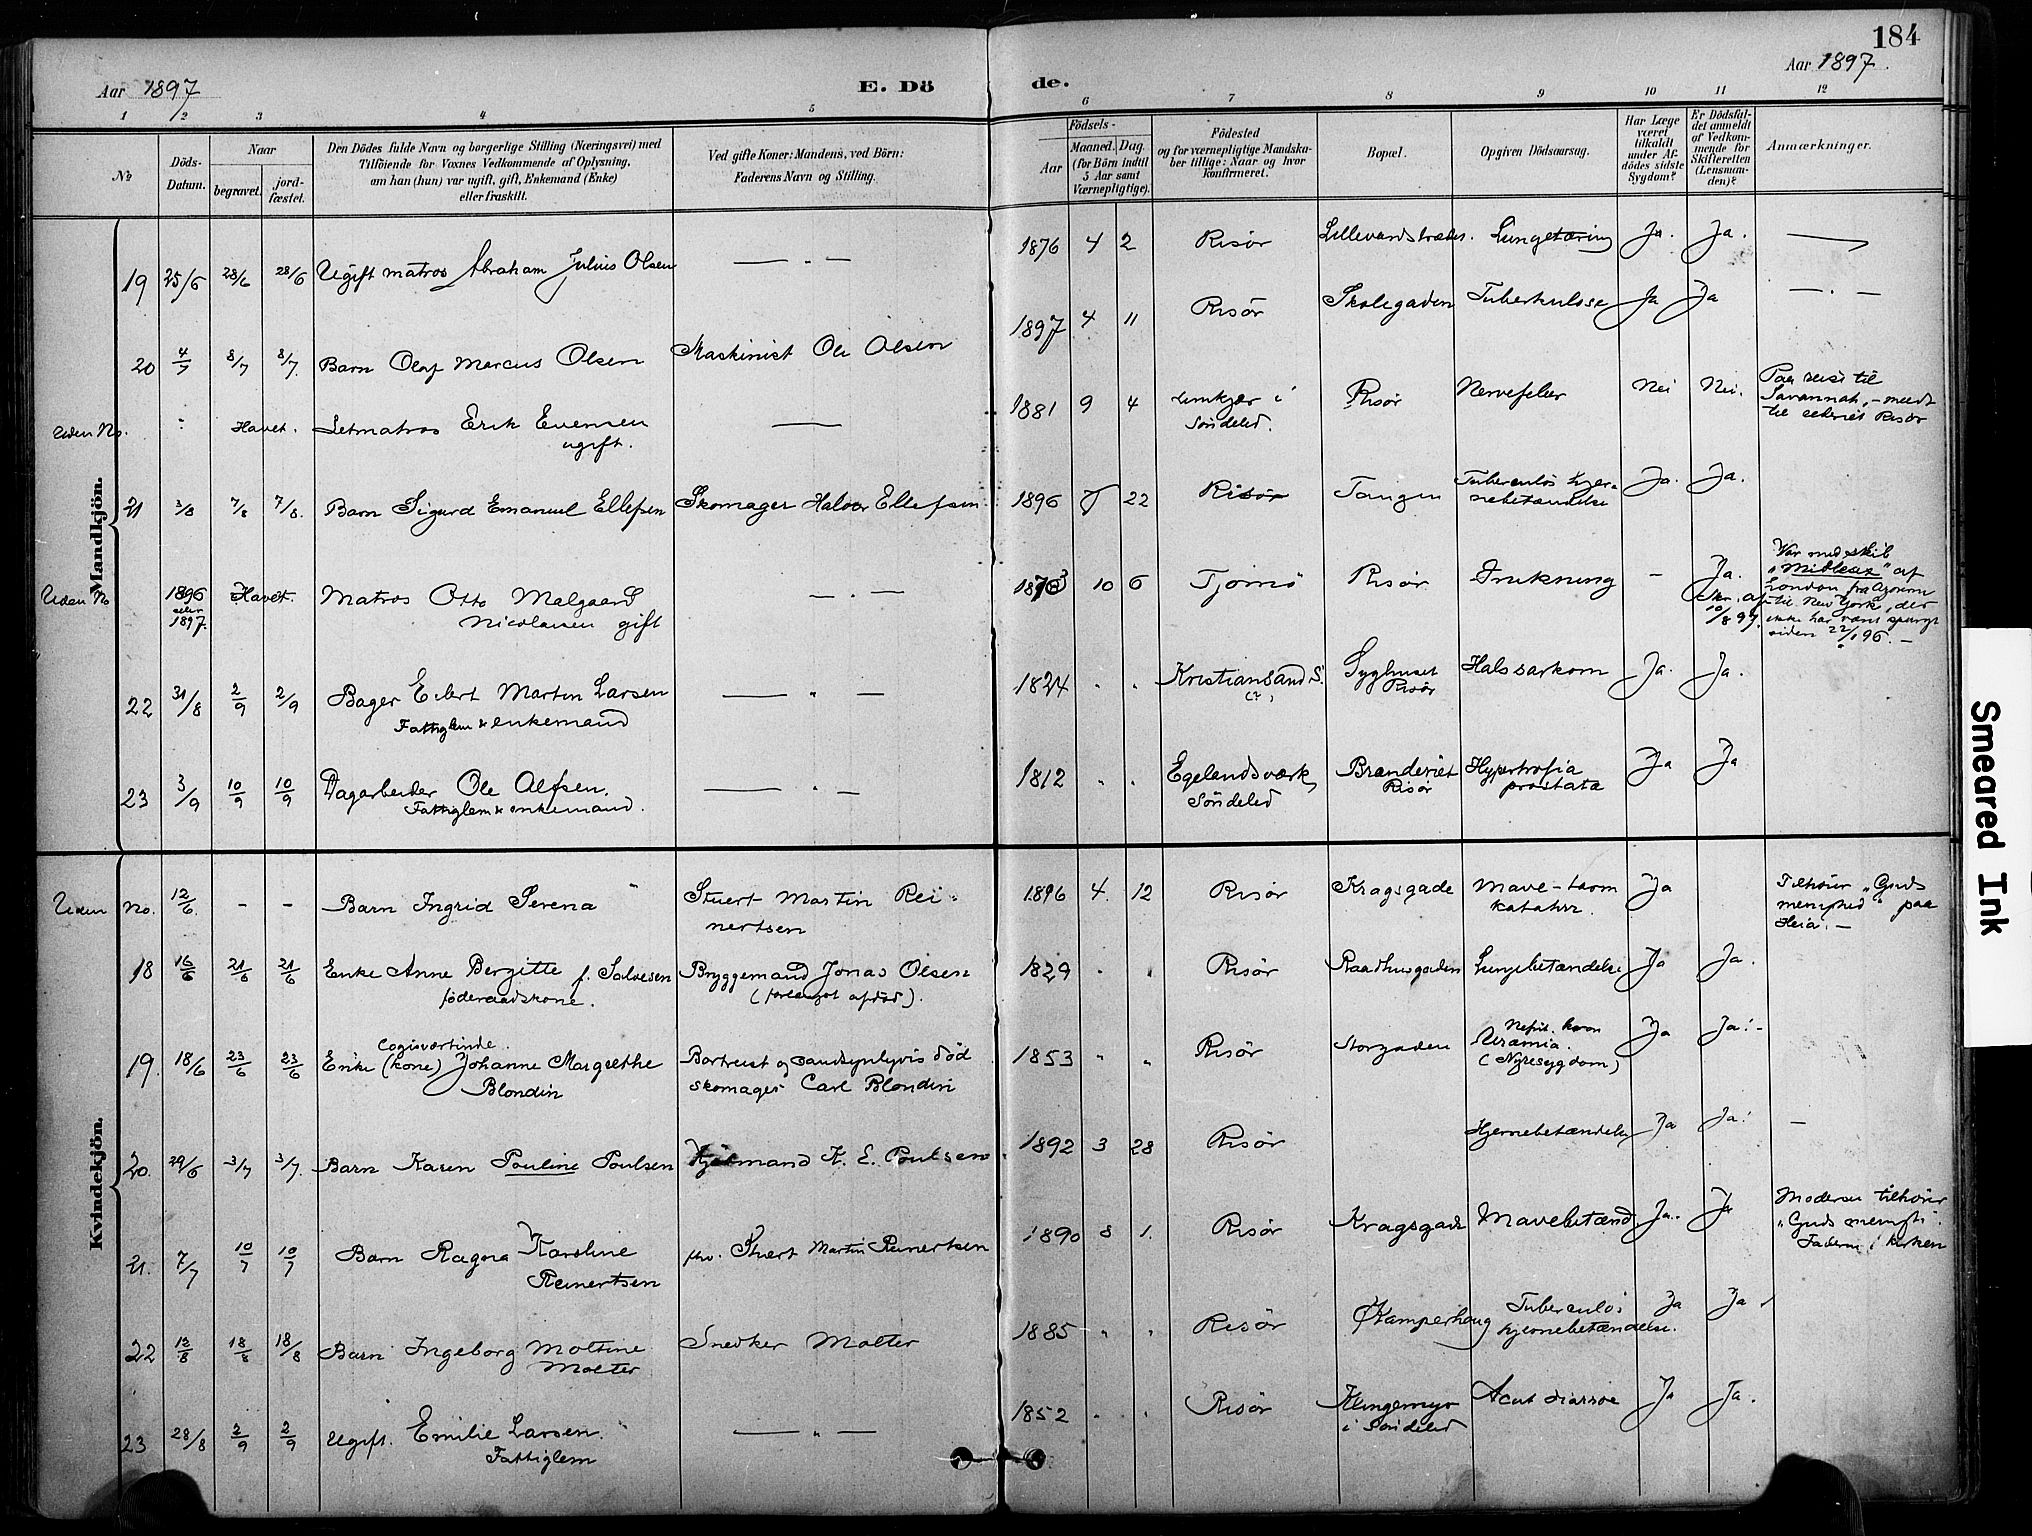 184
Aar 1897
E. Dö
de.
Aar 1897.
1 2 3 4 5 6 7 8 9 10 11 12
No
Döds-Datum.
Naar
begravet.
jord-fæstet.
Den Dödes fulde Navn og borgerlige Stilling (Næringsvei) med
Tilföiende for Voxnes Vedkommende af Oplysning,
om han (hun) var ugift, gift, Enkemand (Enke)
eller fraskilt.
Ved gifte Koner: Mandens, ved Börn:
Faderens Navn og Stilling.
Födsels-
Aar
Maaned. Dag.
(for Börn indtil
5 Aar samt
Værnepligtige).
Födested
og for værnepligtige Mandska-
ber tillige: Naar og hvor
konfirmeret.
Bopæl.
Opgiven Dödsaarsag.
Har Læge
været
tilkaldt
under Af-
dödes sidste
Sygdom?
Er Dödsfal-
det anmeldt
af Vedkom-
mende for
Skifteretten
(Lensman-
den)?
Anmærkninger.
Mandkjön.
19 25/6 28/6 28/6 Ugift matros Abraham Julius Olsen — " — 1876 4 2 Risör Lungetæring Ja. Ja. —
20 4/7 8/7 8/7. Barn Olaf Marcus Olsen Maskinist Ole Olsen 1897 4 11 Risör Skolegaden Tuberkulose Ja Ja — . —
Uden No. Havet. Letmatros Erik Evensen
ugift. — 1881 9 4 i
Söndeled. Risör Nervefeber Nei Nei. Paa reise til
Savannah, –
til Risör
21 3/8 7/8 7/8. Barn Sigurd Emanuel Ellefsen Skomager Halvor Ellefsen 1896 22 Risör Tangen Tuberculös hjer-
nebetændelse Ja. Ja.
Uden No 1896
eller
1897. Havet. Matros Otto Malgaard
Nicolaisen gift — . — 10 6 Tjömö Risör Drukning – Ja.
10/8 99. Var med skib
af
London fra
til New York, der
ikke har været spurgt
siden 22/1 96. –
22 31/8 2/9 2/9 Bager Eilert Martin Larsen
Fattiglem & enkemand — " — 1824 " " Kristiansand S.
(?) Syghuset
Risör Halssarkom Ja. Ja.
23 3/9 10/9 10/9 Dagarbeider Ole Alfsen.
Fattiglem & enkemand. — " — 1812 " " Egelandsværk,
Söndeled Brænderiet
Risör Hypertrofia
prostata Ja Ja
Kvindekjön.
Uden No. 12/6. - - Barn Ingrid Serena Stuert Martin Rei-
nertsen 1896 4. 12 Risör Kragsgade Mave-tarm
katahrr. Ja Tilhörer „Guds
menighed“ paa
Heia. –
18 16/6 21/6 21/6 Enke Anne Bergitte f. Salvesen
föderaadskone. Bryggemand Jonas Olsen
(forlængst afdöd). 1829 " " Risör Raadhusgaden Lungebetændelse Ja Ja.
19. 18/6 23/6 23/6 Logisværtinde
Enke (kone) Johanne Margrethe
Blondin Bortreist og sandsynligvis död
skomager Carl Blondin 1853 " " Risör Storgaden
Uræmia.
(Nyresygdom) Ja Ja! -
20. 29/6 3/7 3/7. Barn Karen Pouline Poulsen K. E. Poulsen. 1892 3 28 Risör Hjernebetændelse Ja Ja! –
21. 7/7 10/7 10/7 Barn Ragna Karoline
Reinertsen fhv. Stuert Martin Reinertsen 1890 8 1. Risör Kragsgade Mavebetænd. Ja. Ja Moderen tilhörer
„Guds menigh“.
Faderen i kirken
22 12/8 18/8 18/8 Barn Ingeborg Moltine
Molter Snedker Molter 1885 " " Risör Kamperhoug Tuberculös
hjernebetændelse. Ja Ja
23 28/8 2/9 2/9 Ugift. Emilie Larsen.
Fattiglem — " — 1852 " " Risör Klingemyr
i Söndeled Acut diarroe Ja Ja.
Smeared Ink